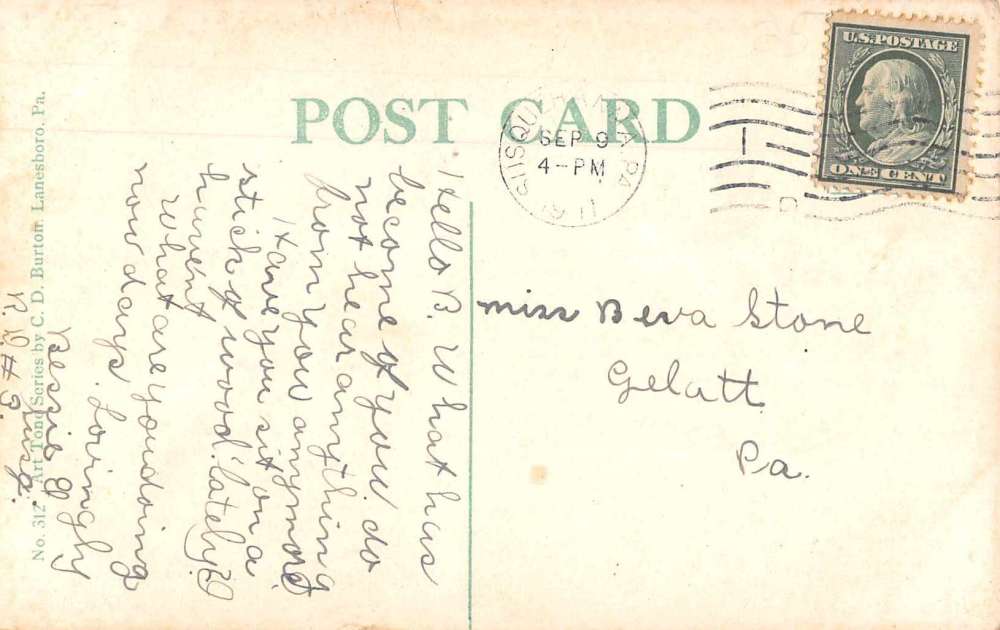 POST CARD
SUSQUEHANNA PA
SEP 9
4-PM
1911
U.S. POSTAGE
ONE CENT
Hello B. What has
become of you do
not hear anything
from you anymore
Have you sit on a
stick of wood lately?
haven't
What are you doing
now days. Lovingly
Bessie
R. D. # 3.
Miss Beva Stone
Gelatt
Pa.
No. 312 Art Tone Series by C. D. Burton Lanesboro, Pa.